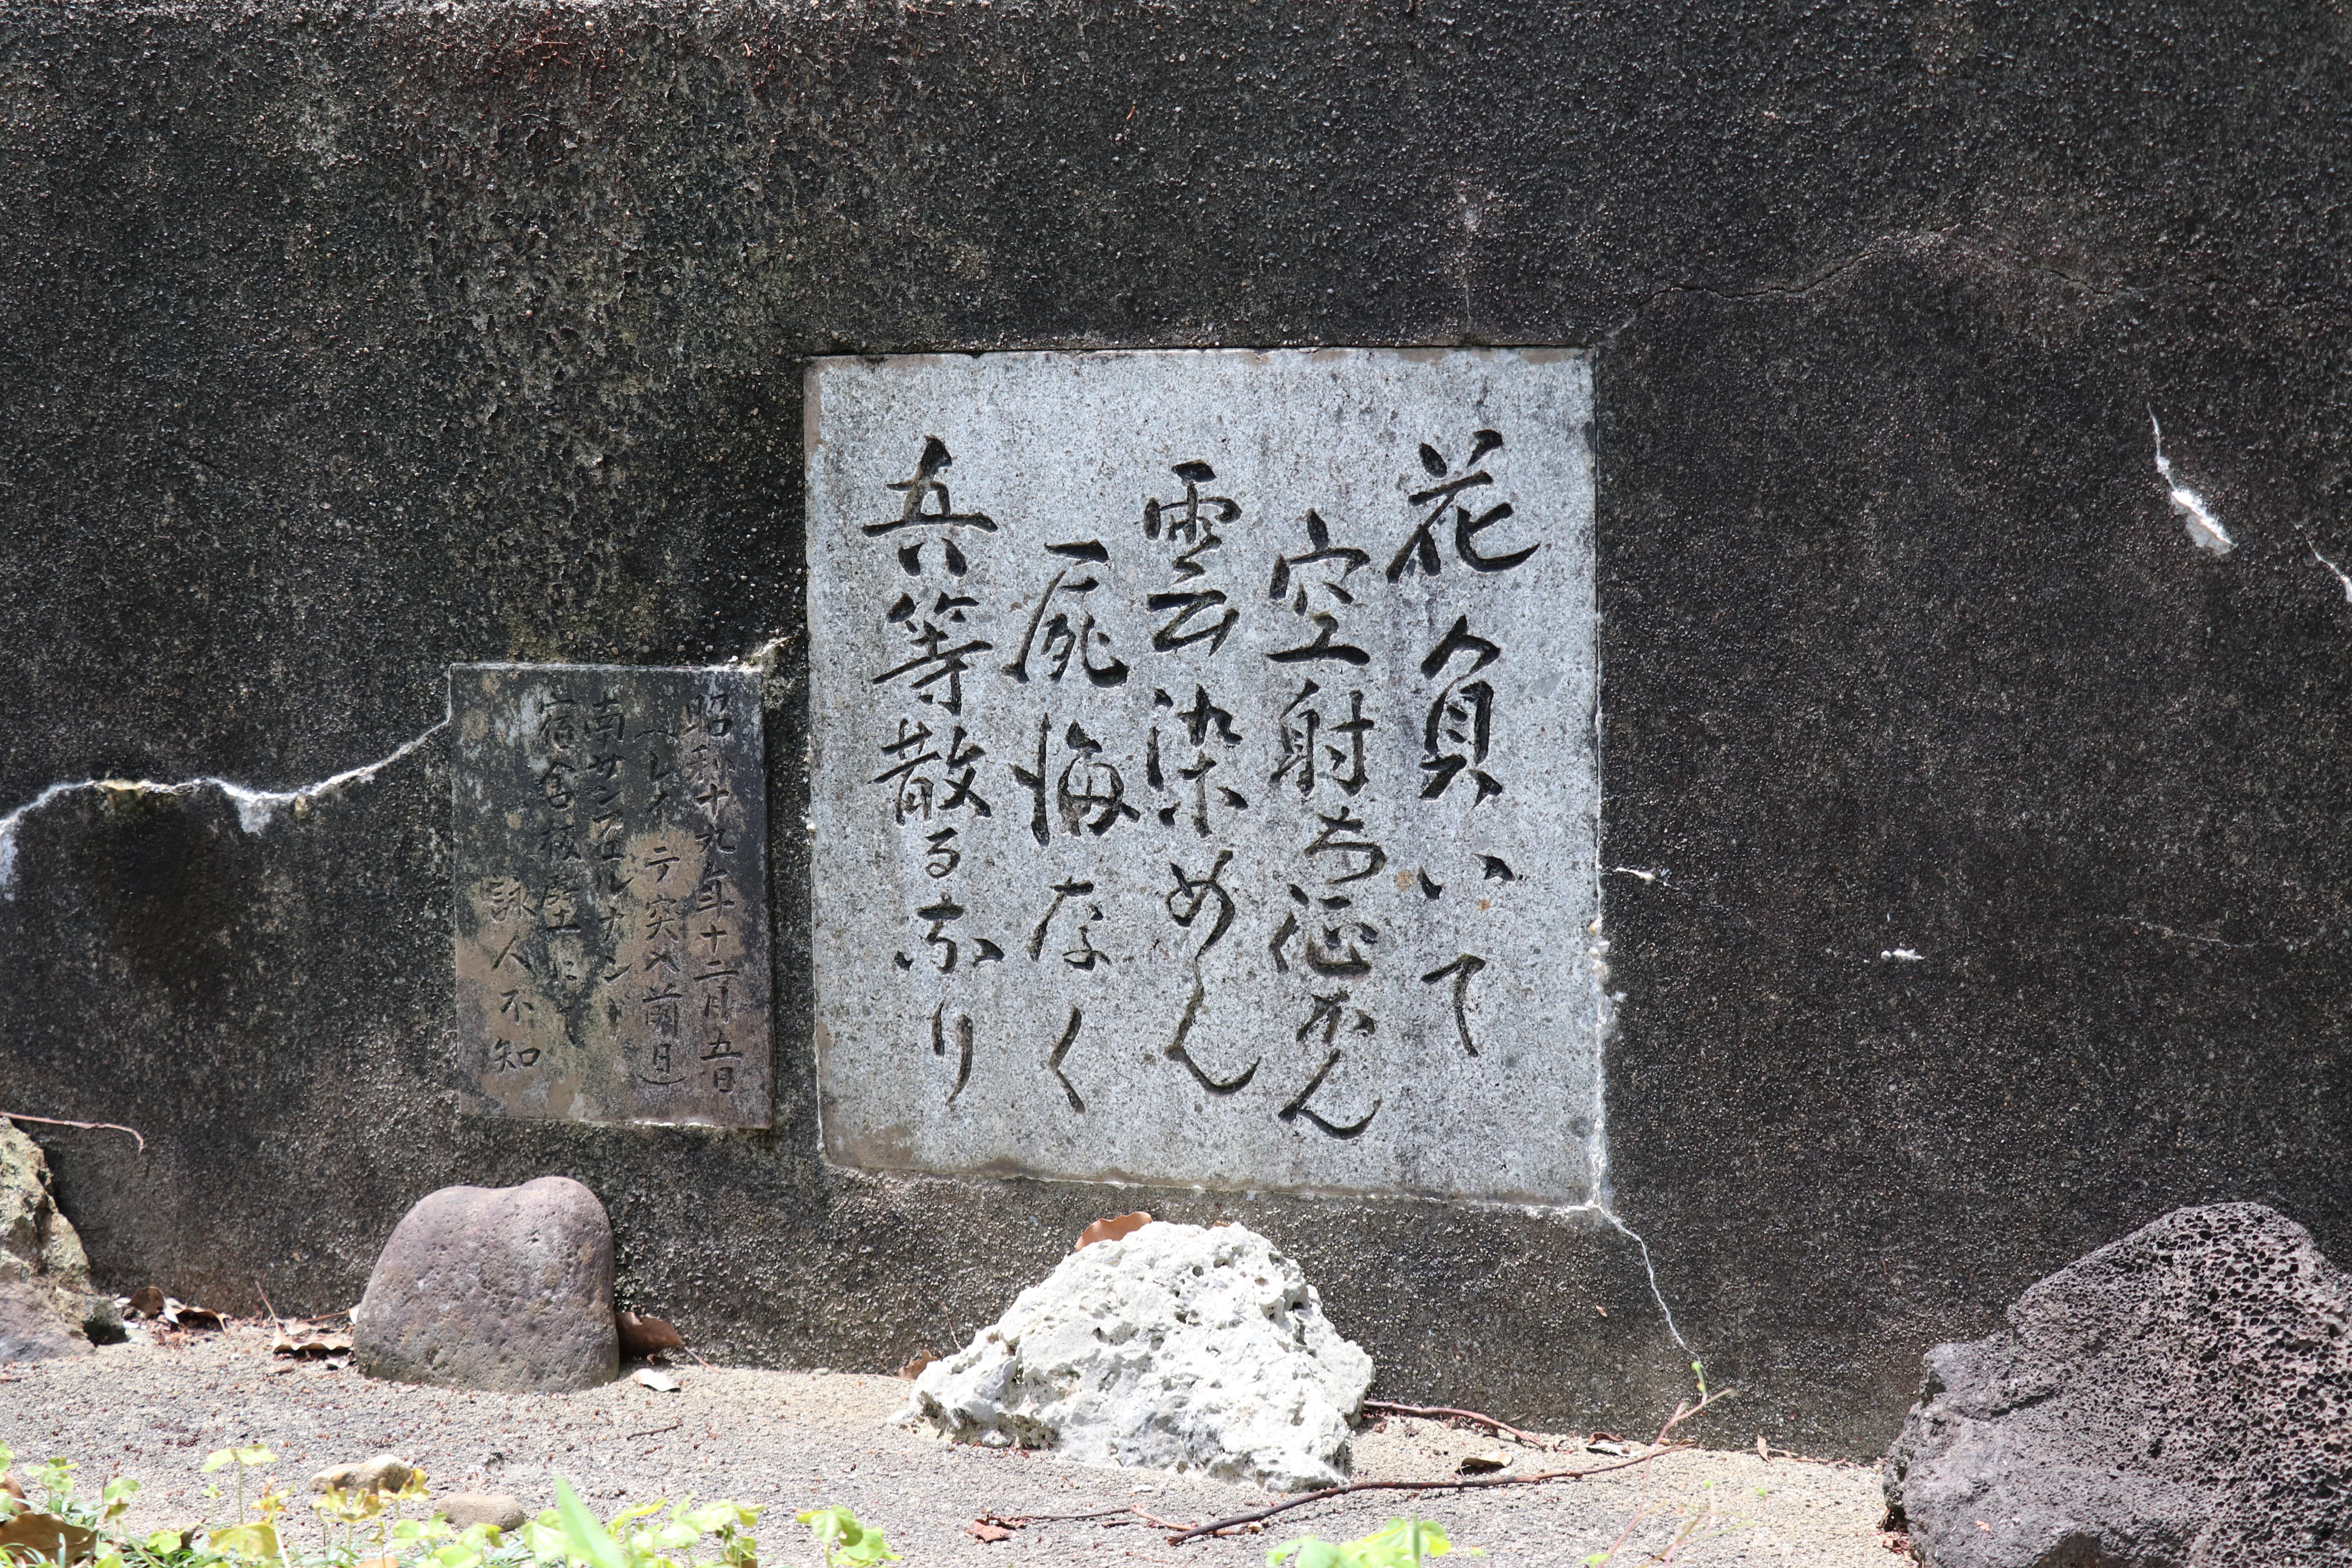 花負いて
空射ち征かん
雲染めん
屍悔なく
兵等散るなり
昭和十九年十二月五日
(レイテ突入前日)
南サンフェルナンド
宿舎板壁にて
詠人不知